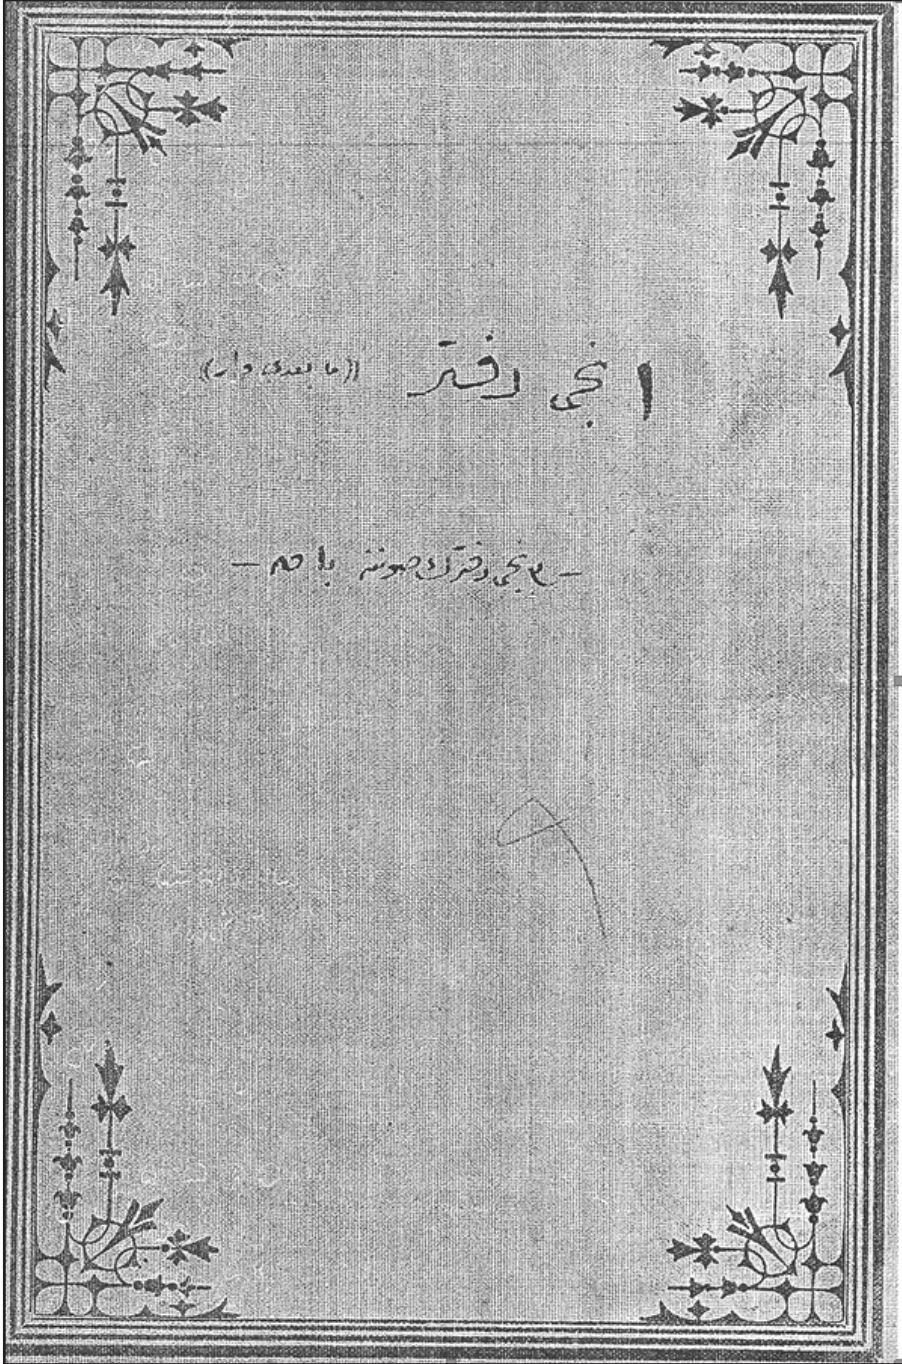 ١ نجی دفتر ((ما بعدی وار))
— نجی دفترك صوننه باق —